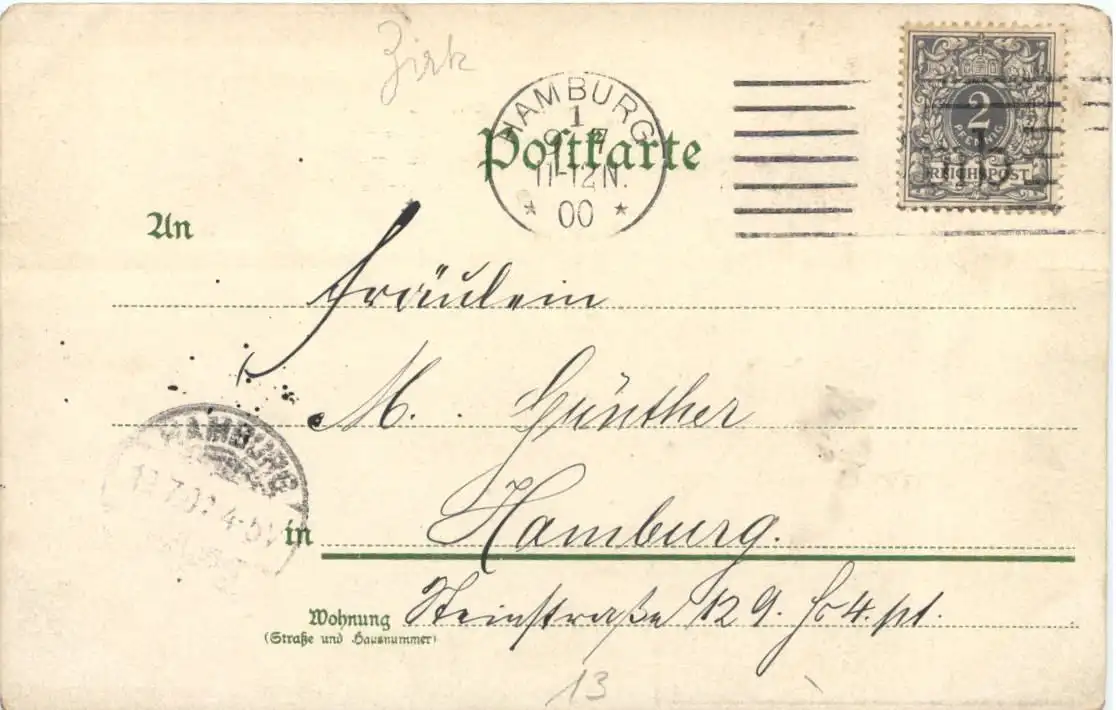 Zirk
HAMBURG
1
9 7
11-12 N.
* 00 *
2
PFENNIG
REICHSPOST
Postkarte
An
Fräulein
M. Günther
HAMBURG
in Hamburg.
Wohnung Steinstraße 129. Hs 4. pt.
(Straße und Hausnummer)
13